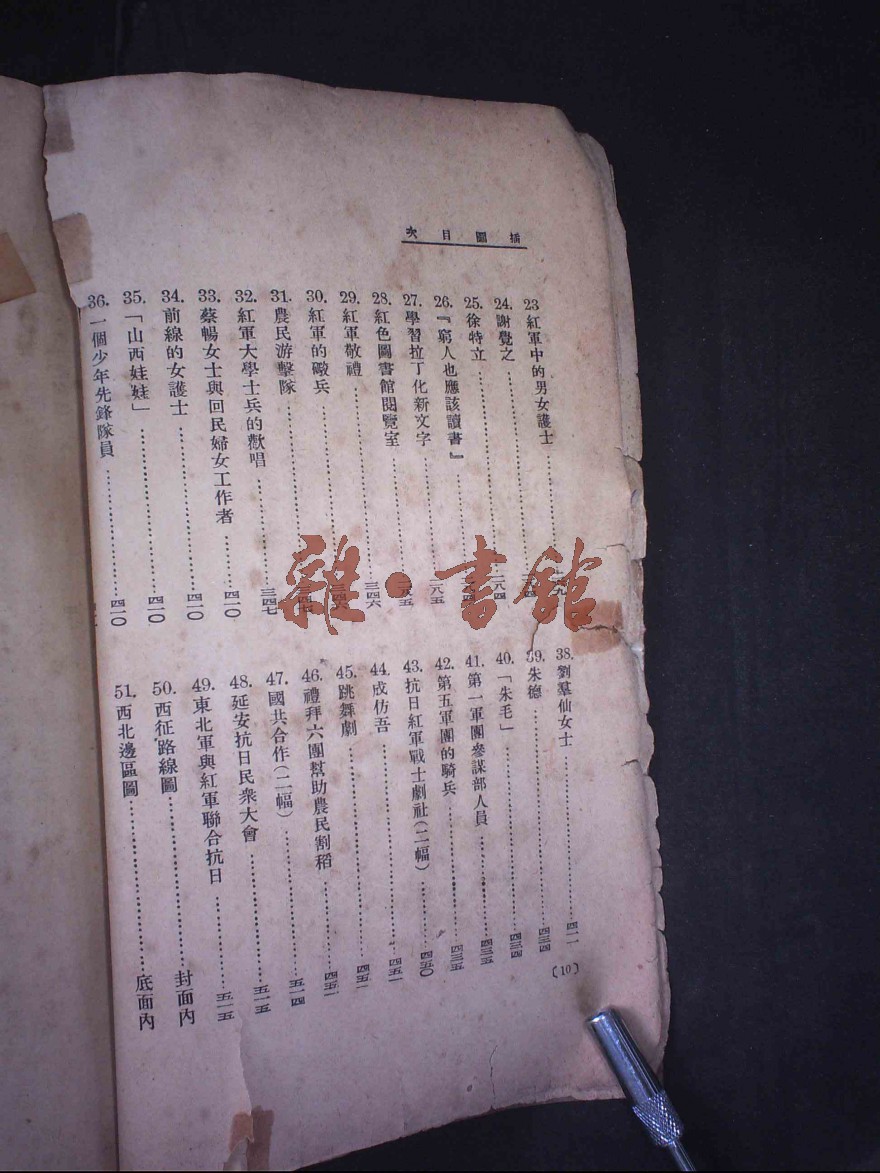 插圖目次
23 紅軍中的男女護士
24. 謝覺之
25. 徐特立
26. 『窮人也應該讀書』
27. 學習拉丁化新文字
28. 紅色圖書館閱覽室……三四六
29. 紅軍敬禮
30. 紅軍的礮兵
31. 農民游擊隊
32. 紅軍大學士兵的歡唱……三四七
33. 蔡暢女士與回民婦女工作者……四一〇
34. 前線的女護士……四一〇
35. 「山西娃娃」……四一〇
36. 一個少年先鋒隊員……四一〇
38. 劉羣仙女士……四一一
39. 朱德……四三四
40. 「朱毛」……四三四
41. 第一軍團參謀部人員……四三五
42. 第五軍團的騎兵……四三五
43. 抗日紅軍戰士劇社(二幅)……四五〇
44. 成仿吾……四五一
45. 跳舞劇……四五一
46. 禮拜六團幫助農民割稻……四五一
47. 國共合作(二幅)……五一四
48. 延安抗日民衆大會……五一五
49. 東北軍與紅軍聯合抗日……五一五
50. 西征路線圖……封面內
51. 西北邊區圖……底面內
(10)
雜·書館